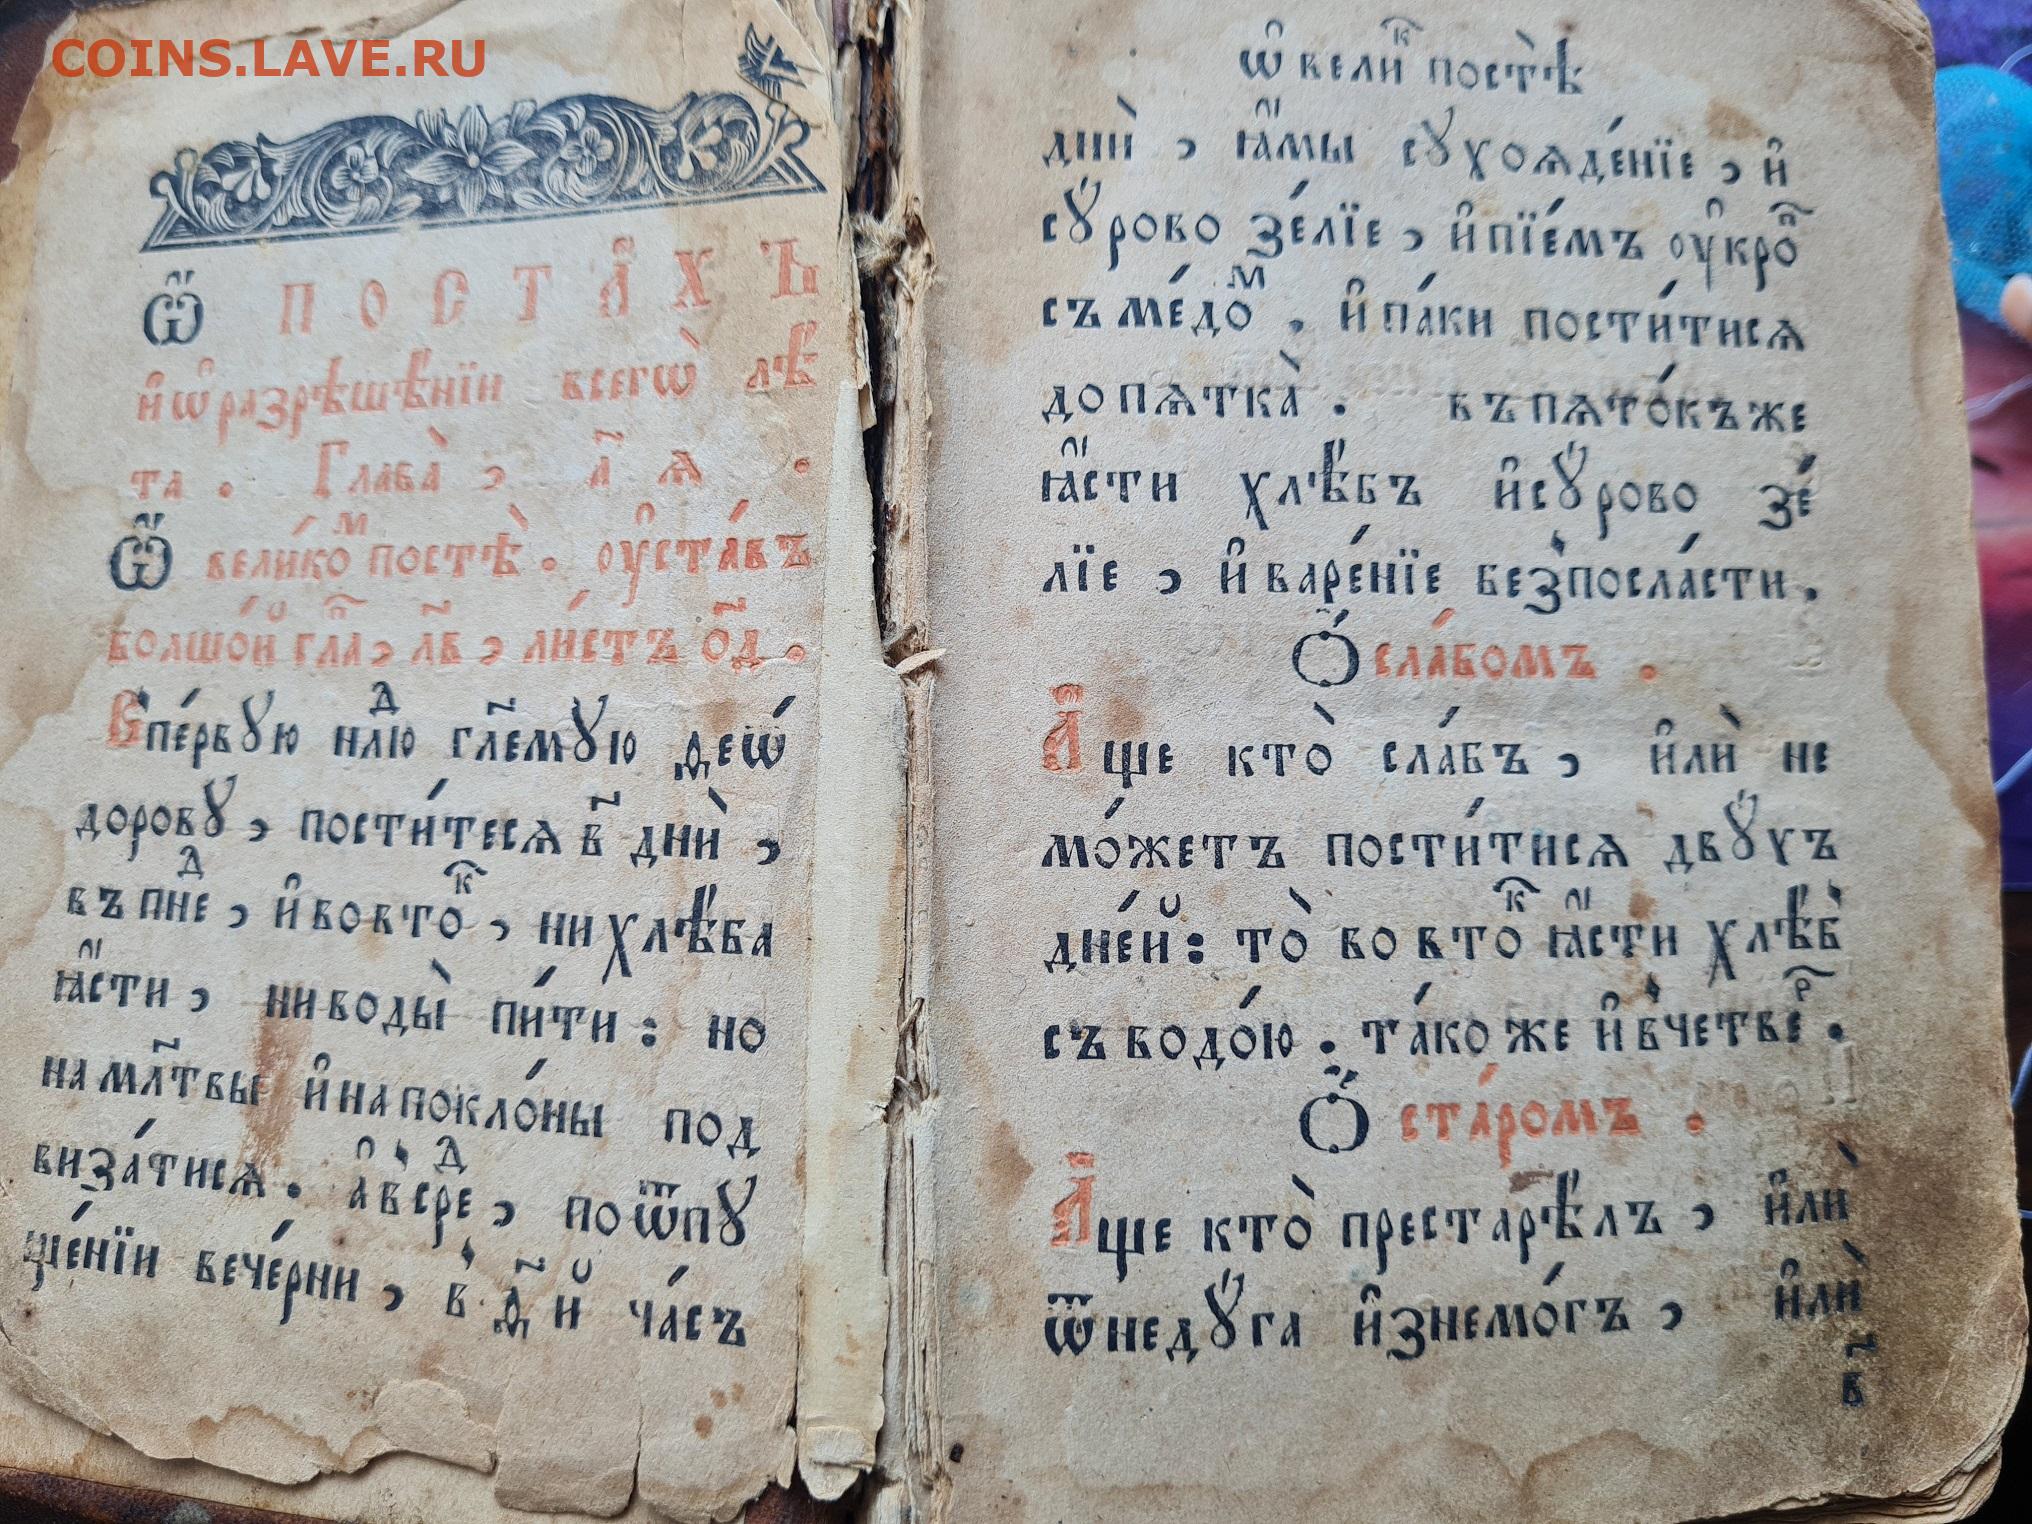 COINS.LAVE.RU
Ѽ ПОСТА҆́ХЪ
и҆ ѡ҆ разрѣше́нїи всегѡ̀ лѣ́
та . Глава̀ , а҃ ѧ .
Ѽ вели́коⷨ постѣ̀ . ᲂу҆ста́въ
болшо́й глⷡ҇а , л҃в , ли́стъ ѻ҃д .
В пе́рвꙋю нлⷣю гл҃емꙋю ѳеѡ́
доровꙋ , пости́тесѧ в҃ днѝ ,
въ пнⷣе , и҆ во втоⷦ҇ , ни хлѣ́ба
ꙗ҆́сти , ни воды̀ пи́ти : но
на мл҃твы и҆ на покло́ны под
виза́тисѧ . а҆ в̾ срⷣе , по ѿпꙋ
ще́нїи вече́рни , в̾ ѳ҃ й ча́съ
ѡ҆ велиⷦ҇ постѣ̀
днѝ , ꙗ҆́мы сꙋхоѧде́нїе , и҆
сꙋ́рово зе́лїе , и҆ пїе́мъ ᲂу҆кроⷫ҇
съ ме́доⷨ . и҆ па́ки пости́тисѧ
до пѧтка̀ . въ пѧто́къ же
ꙗ҆́сти хлѣ́бъ и҆ сꙋ́рово зе́
лїе , и҆ варе́нїе без̾ посла́сти .
Ѽ сла́бомъ .
А҆́ще кто̀ сла́бъ , и҆лѝ не
мо́жетъ пости́тисѧ двꙋ́хъ
дне́й : то̀ во втоⷦ҇ ꙗ҆́сти хлѣ́б̾
съ водо́ю . та́ко же и҆ в̾ четвеⷬ҇ .
Ѽ ста́ромъ .
А҆́ще кто̀ престарѣ́лъ , и҆лѝ
ѿ недꙋ́га и҆знемо́гъ , и҆лѝ
в҃